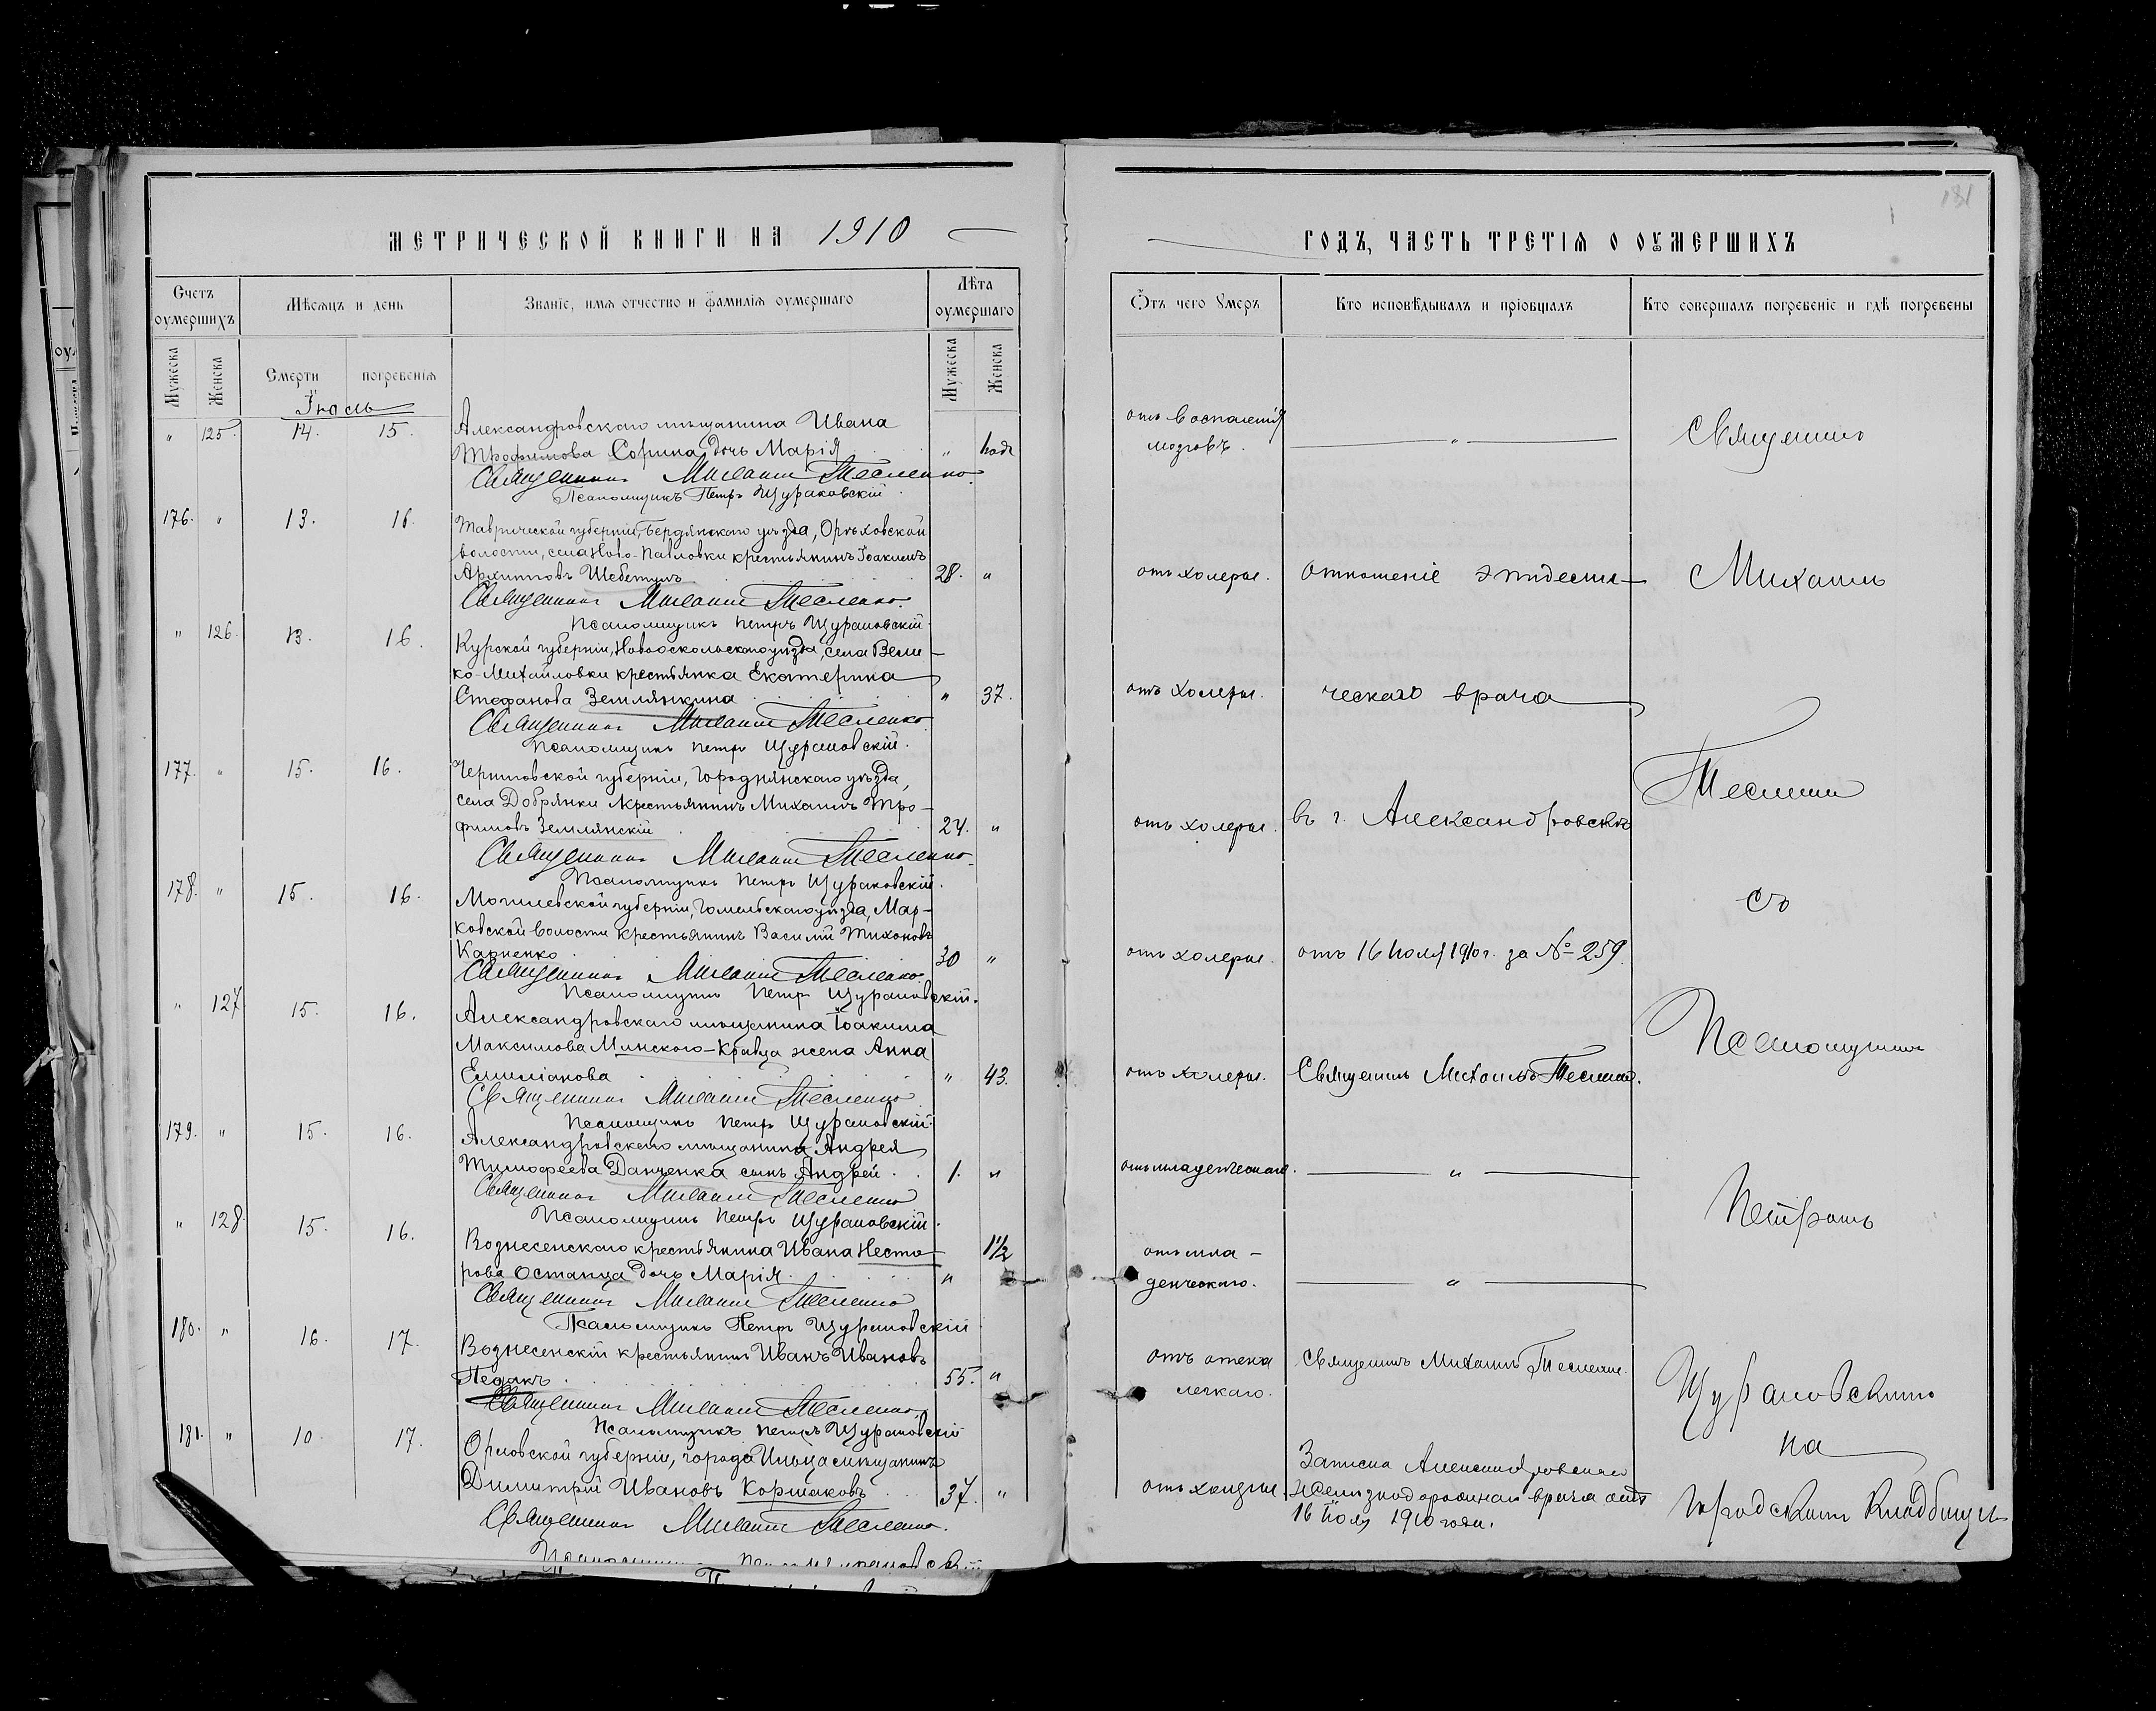 МЕТРИЧЕСКОЙ КНИГИ НА 1910
Счетъ оумершихъ
Мѣсяцъ и день
Званіе, имя отчество и фамилія оумершаго
Лѣта оумершаго
Мужеска
Женска
Смерти
погребенія
Мужеска
Женска
Іюль
" 125. 14. 15. Александровскаго мѣщанина Ивана
Трофимова Сорина дочь Марія " 
Священникъ Михаилъ Тесленко.
Псаломщикъ Петръ Щурановскій
176. " 13. 16. Таврической губерніи, Бердянскаго уѣзда, Орѣховской
волости, села Ново-Павловки крестьянинъ Іоакимъ
Архиповъ 28. "
Священникъ Михаилъ Тесленко.
Псаломщикъ Петръ Щурановскій
" 126. 13. 16. Курской губерніи, Новооскольскаго уѣзда, села Вели-
ко-Михайловки крестьянка Екатерина
Стефанова Землянкина " 37.
Священникъ Михаилъ Тесленко
Псаломщикъ Петръ Щурановскій.
177. " 15. 16. Черниговской губерніи, Городнянскаго уѣзда,
села Добрянки крестьянинъ Михаилъ Тро-
фимовъ Землянскій 24. "
Священникъ Михаилъ Тесленко.
Псаломщикъ Петръ Щурановскій.
178. " 15. 16. Могилевской губерніи, Гомельскаго уѣзда, Мар-
ковской волости крестьянинъ Василій Тихоновъ
Карпенко 30 "
Священникъ Михаилъ Тесленко.
Псаломщикъ Петръ Щурановскій.
" 127 15. 16. Александровскаго мѣщанина Іоакима
Максимова Минского-Кравца жена Анна
Емиліанова " 43.
Священникъ Михаилъ Тесленко
Псаломщикъ Петръ Щурановскій
179. " 15. 16. Александровскаго мѣщанина Андрея
Тимофеева Данченка сынъ Андрей. 1. "
Священникъ Михаилъ Тесленко
Псаломщикъ Петръ Щурановскій.
" 128. 15. 16. Вознесенскаго крестьянина Ивана Несто-
рова Останца дочь Марія. " 1½
Священникъ Михаилъ Тесленко
Псаломщикъ Петръ Щурановскій
180. " 16. 17. Вознесенскій крестьянинъ Иванъ Ивановъ
Педакъ. 55. "
Священникъ Михаилъ Тесленко
Псаломщикъ Петръ Щурановскій
181. " 10. 17. Орловской губерніи, города Ельца мѣщанинъ
Димитрій Ивановъ Коршаковъ 37. "
Священникъ Михаилъ Тесленко.
181
ГОДЪ, ЧАСТЬ ТРЕТІЯ О ОУМЕРШИХЪ
Ѿтъ чего Умеръ
Кто исповѣдывалъ и пріобщалъ
Кто совершалъ погребеніе и гдѣ погребены
отъ воспаленія
мозговъ. " Священникъ
отъ холеры. отношеніе эпидеми- Михаилъ
отъ холеры. ческаго врача
Тесленко
отъ холеры. въ г. Александровскѣ
съ
отъ холеры. отъ 16 Іюля 1910 г. за № 259.
Псаломщикомъ
отъ холеры. Священникъ Михаилъ Тесленко.
отъ младенческаго. "
Петромъ
отъ мла-
денческаго. "
отъ отека Священникъ Михаилъ Тесленко.
легкаго.
Щурановскимъ
на
Записка Александровскаго
отъ холеры. Желѣзнодорожнаго врача отъ
16 Іюля 1910 года.
городскомъ кладбищѣ